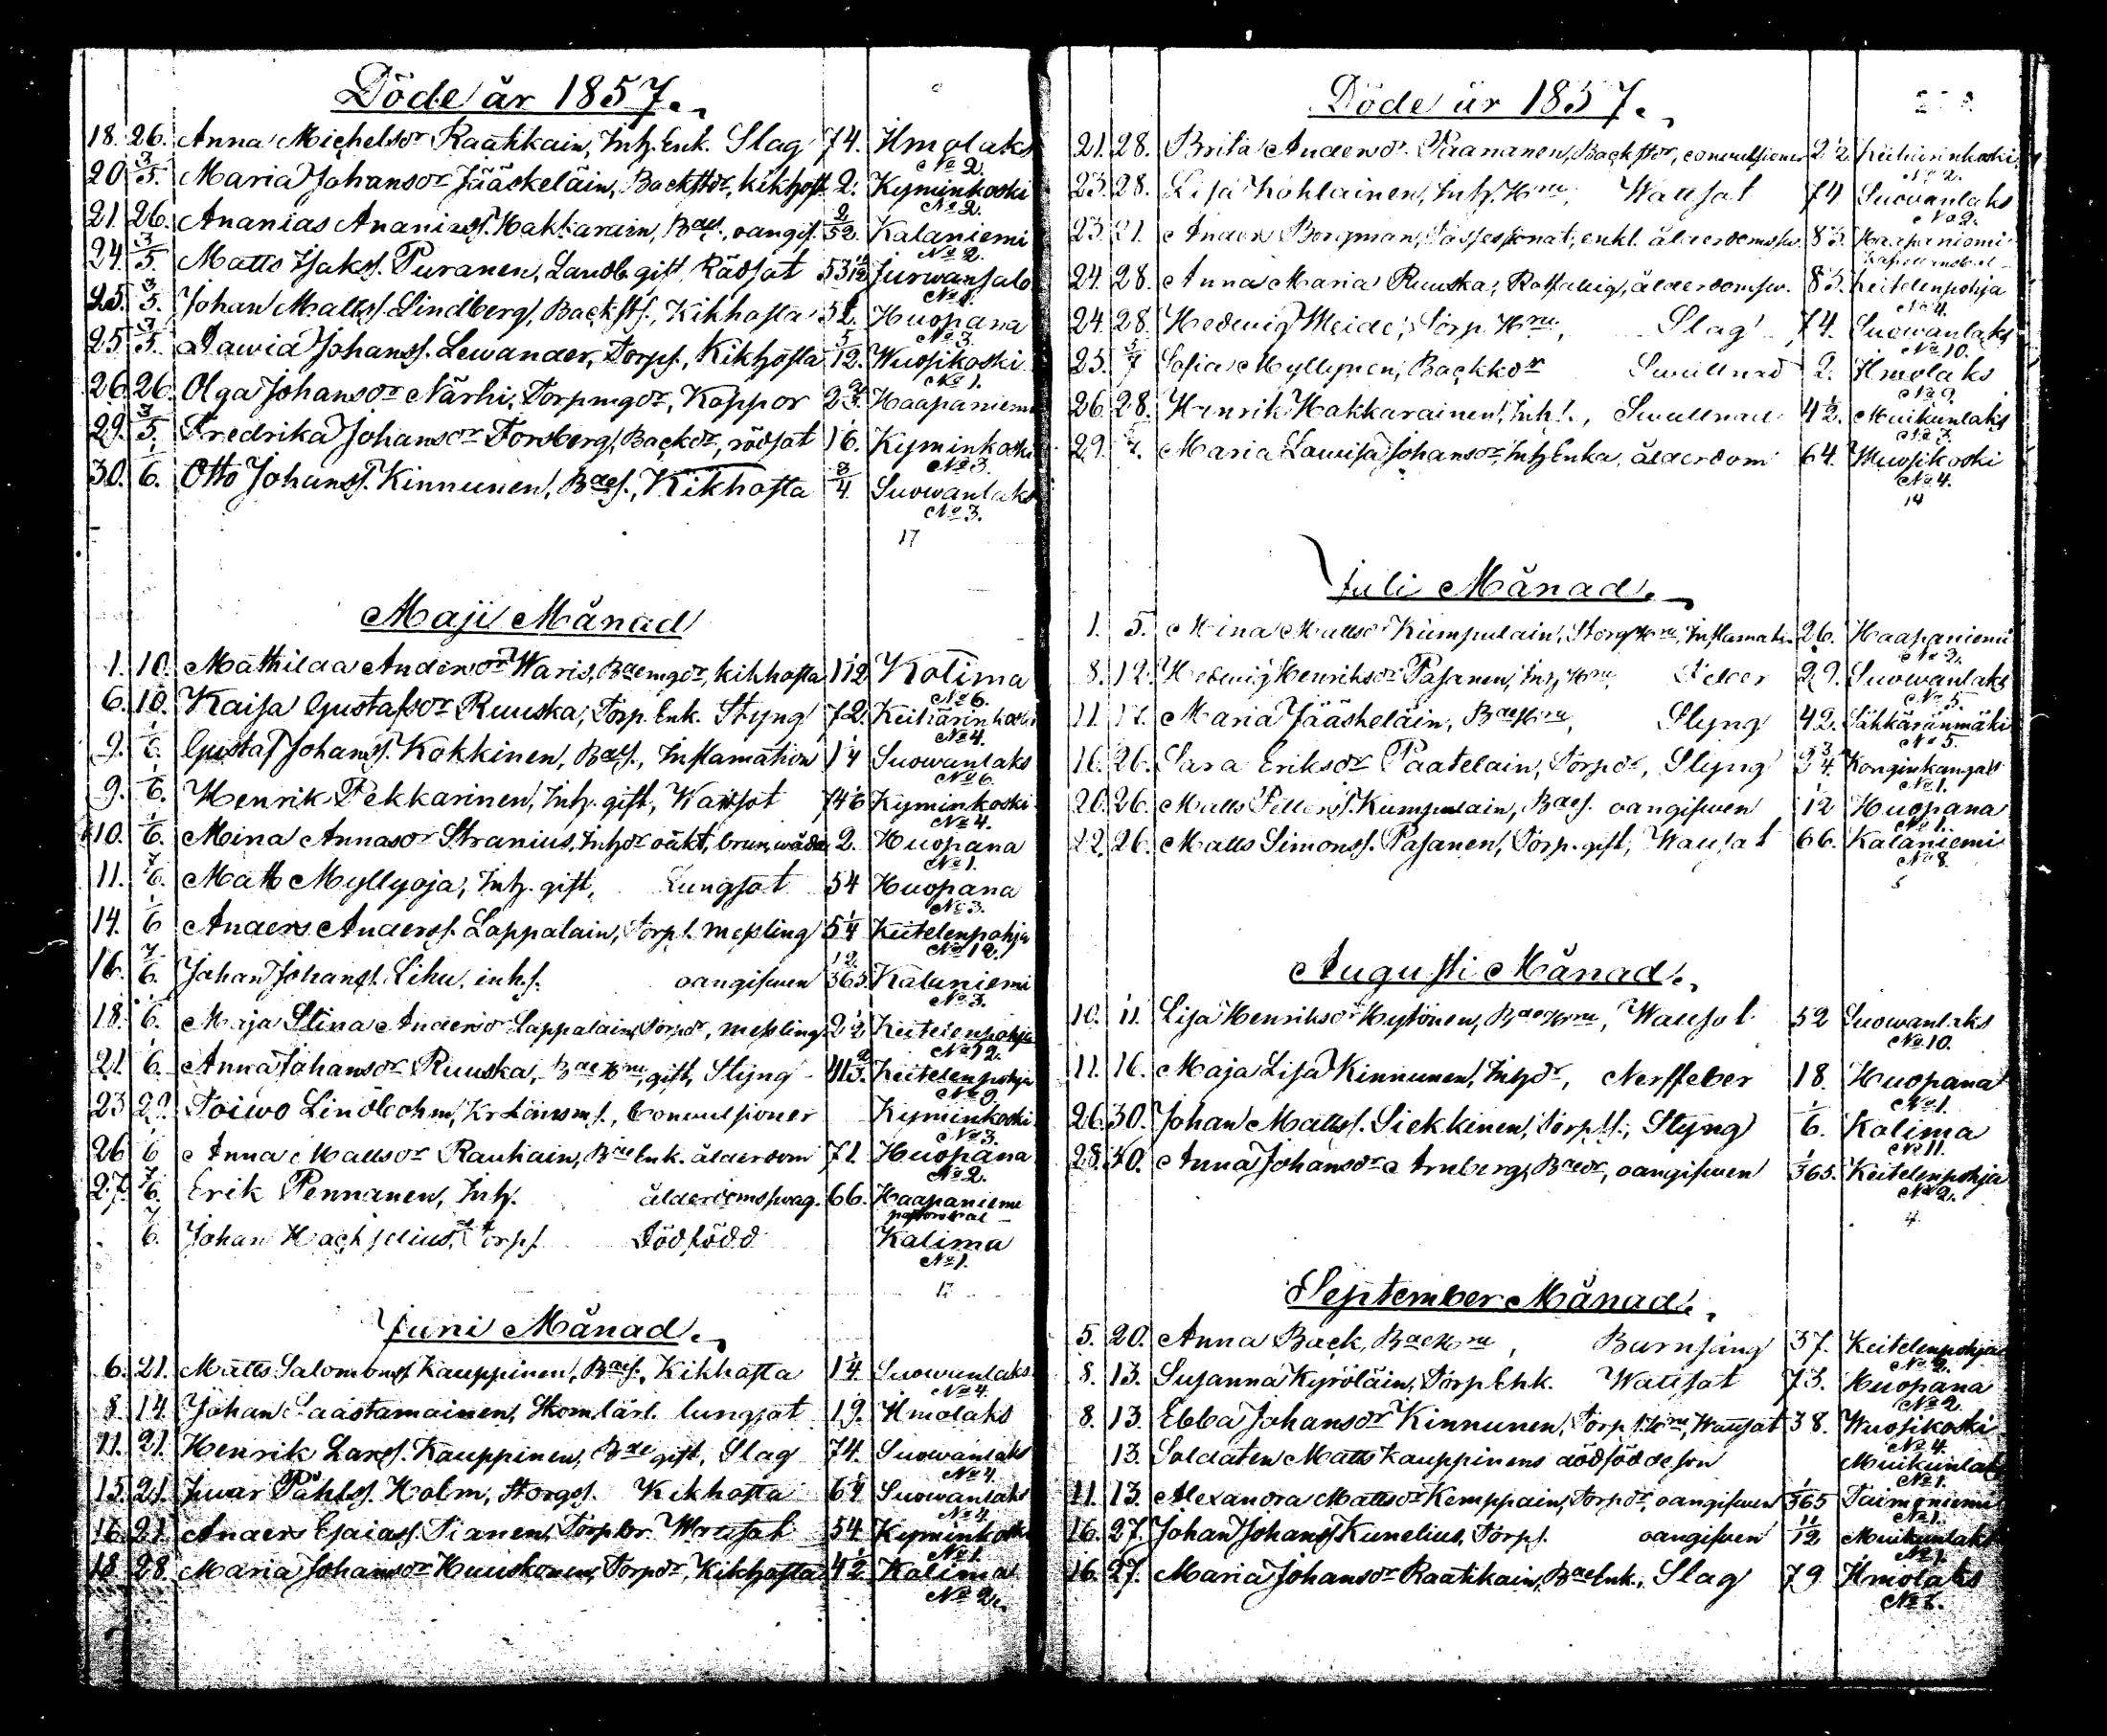 Döde år 1857.
18. 26. Anna Michelsdr Raatikain, Inh. Enk. Slag 74. Ilmolaks
No 2.
20 3/5. Maria Johansdr Jääskeläin, Backstdr, kikhost 2. Kyminkoski
No 2.
21. 26. Ananias Ananiasss. Hakkarain, Bdes., oangif. 2/52. Kalaniemi
No 2.
24. 3/5. Matts Isaks. Puranen, Landb. gift, Rödsot 53 1/12 Jurwansalo
No 1.
25. 3/5. Johan Matts. Lindberg, Backsts., Kikhosta 52. Huopana
No 3.
25 3/5. Dawid Johans. Lewander, Torps., Kikhosta 5/12. Wuosikoski
No 1.
26. 26. Olga Johansdr Närhi, Torpmgdr, Koppor 2 2/3. Haapaniemi
29. 3/5. Fredrika Johansdr Forsberg, Backdr, rödsot 1/6. Kyminkoski
No 3.
30. 1/6. Otto Johans. Kinnunen, Bdes., Kikhosta 3/4 Suowanlaks
No 3.
17
Maji Månad
1. 10. Mathilda Andersdr Waris, Bdemgdr, kikhosta 1 1/2 Kolima
No 6.
6. 10. Kaisa Gustafsdr Ruuska, Torp. Enk. Styng 72. Keihärinkoski
No 4.
9. 1/6. Gustaf Johans. Kokkinen, Bdes., Inflamation 1 1/4 Suowanlaks
No 6.
9. 1/6. Henrik Pekkarinen, Inh. gift, Wattsot 74 1/6 Kyminkoski
No 4.
10. 1/6. Mina Annasdr Stranius, Inhdr oäkt, brun. 2. Huopana
No 1.
11. 7/6. Matts Myllyoja, Inh. gift, Lungsot 54 Huopana
No 3.
14. 1/6 Anders Anders. Lappalain, Torps. messling 5 1/4 Keitelenpohja
No 12.
16. 7/6. Johan Johans. Lihu, inhs. oangifwen 12/365. Kalaniemi
No 3.
18. 1/6. Maja Stina Andersdr Lappalain, Torpdr, messling 2 1/2 Keitelenpohja
No 12.
21. 1/6. Anna Johansdr Ruuska, Bdehru, gift, Styng 41 2/3. Keitelenpohja
No 9
23 29. Toiwo Lindbohm, Kr. Länsm. s., Convulsioner Kyminkoski
No 3.
26 1/6 Anna Mattsdr Rauhain, Bde Enk. ålderdom 71. Huopana
No 2.
27. 7/6. Erik Pennanen, Inh. ålderdomswag. 66. Haapaniemi
pastorsbol
7/6. Johan Hackselius, Torps. Dödfödd Kalima
No 1.
Juni Månad.
6. 21. Matts Salomons. Kauppinen, Bdes., Kikhosta 1 1/4 Suowanlaks
No 4.
8. 14. Johan Saastamainen, Skom. lärl. lungsot 19. Ilmolaks
11. 21. Henrik Lars. Kauppinen, Bde gift, Slag 74. Suowanlaks
No 4.
15. 21. Iwar Påhls. Holm, Storgs. Kikhosta 6 1/4 Suowanlaks
No 4.
16. 21. Anders Esaias. Pianen, Torpbr. Wattsot 54. Kyminkoski
No 1.
18. 28. Maria Johansdr Huuskonen, Torpdr, Kikhosta 4 1/2 Kalima
No 2.
Döde år 1857.
21. 28. Brita Andersdr Paananen, Backstdr, convulsioner 2 1/2 Keihärinkoski
No 2.
23. 28. Lisa Kohlainen, Inh. Hru, Wattsot 74 Suowanlaks
No 2.
23. 21. Anders Borgman, enkl. ålderdomssw. 83. Haapaniemi
24. 28. Anna Maria Ruuska, Rotfattig, ålderdomssw. 83. Keitelenpohja
No 4.
24. 28. Hedewig Meide, Torp. Hru, Slag 74. Suowanlaks
No 10.
25. 5/7 Sofia Myllynen, Backdr Swullnad 2. Ilmolaks
No 9.
26. 28. Henrik Hakkarainen, Inh., Swullnad 4 1/2. Muikunlaks
No 7.
29. 5/7. Maria Lowisa Johansdr, Inh Enka, ålderdom 64. Wuosikoski
No 4.
14
Juli Månad.
1. 5. Mina Mattsdr Kumpulain, Storghru, Inflamation 26. Haapaniemi
No 3.
8. 12. Hedewig Henriksdr Pasanen, Inh. Hru Feber 29. Suowanlaks
No 5.
11. 17. Maria Jääskeläin, Bdehru, Styng 42. Sähkäränmäki
No 5.
16. 26. Sara Eriksdr Paatelain, Torpdr, Styng 9 3/4. Konginkangas
No 1.
20. 26. Matts Petters. Kumpulain, Bdes. oangifwen 1/12 Huopana
No 1.
22. 26. Matts Simons. Pasanen, Torp. gift, Wattsot 66. Kalaniemi
No 8.
5
Augusti Månad.
10. 11. Lisa Henriksdr Hytönen, Bdehru, Wattsot 52 Suowanlaks
No 10.
11. 16. Maja Lisa Kinnunen, Inhdr, Nerffeber 18. Huopana
No 1.
26. 30. Johan Matts. Siekkinen, Torps., Styng 1/6. Kolima
No 11.
28. 30. Anna Johansdr Arnberg, Bdedr, oangifwen 1/365. Keitelenpohja
No 2.
4.
September Månad.
5. 20. Anna Back, Bdehru, Barnsäng 37. Keitelenpohja
No 9.
8. 13. Susanna Kyröläin, Torp Enk. Wattsot 73. Huopana
No 2.
8. 13. Ebba Johansdr Kinnunen, Torp. s. Hru, Wattsot 38. Wuosikoski
No 4.
13. Soldaten Matts Kauppinens dödfödde son Muikunlaks
No 1.
11. 13. Alexandra Mattsdr Kemppain, Torpdr, oangifwen 1/365 Taimoniemi
No 1.
16. 27. Johan Johans. Kunelius, Torps. oangifwen 11/12 Muikunlaks
No 1.
16. 27. Maria Johansdr Raatikain, Bde Enk., Slag 79 Ilmolaks